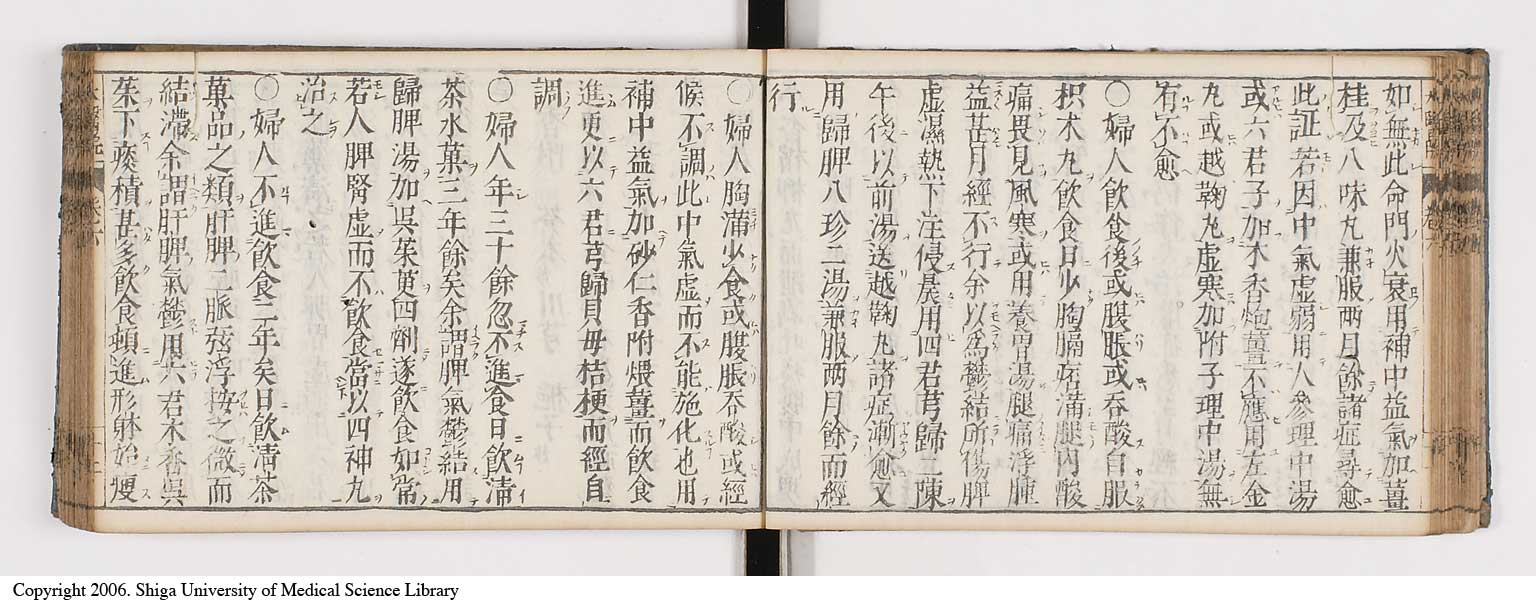 如無此命門火衰用補中益氣加薑
桂及八味丸兼服兩月餘諸症尋愈
此証若因中氣虛弱用人參理中湯
或六君子加木香炮薑不應用左金
丸或越鞠丸虛寒加附子理中湯無
有不愈
○婦人飲食後或腹脹或吞酸自服
枳朮丸飲食日少胸膈痞滿腿內酸
痛畏見風寒或用養胃湯腿痛浮腫
益甚月經不行余以為鬱結所傷脾
虛濕熱下注侵晨用四君芎歸二陳
午後以前湯送越鞠丸諸症漸愈又
用歸脾八珍二湯兼服兩月餘而經
行
○婦人胸滿少食或腹脹吞酸或經
候不調此中氣虛而不能施化也用
補中益氣加砂仁香附煨薑而飲食
進更以六君芎歸貝母桔梗而經自
調
○婦人年三十餘忽不進食日飲清
茶水菓三年餘矣余謂脾氣鬱結用
歸脾湯加吳茱萸四劑遂飲食如常
若人脾腎虛而不飲食當以四神丸
治之
○婦人不進飲食二年矣日飲清茶
菓品之類肝脾二脈弦浮按之微而
結滯余謂肝脾氣鬱用六君木香吳
茱下痰積甚多飲食頓進形躰始瘦
Copyright 2006. Shiga University of Medical Science Library